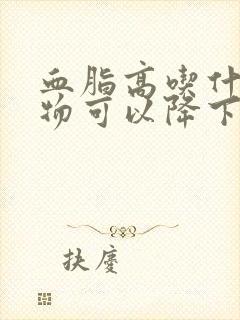 血脂高喫什
物可以降下
扶廑